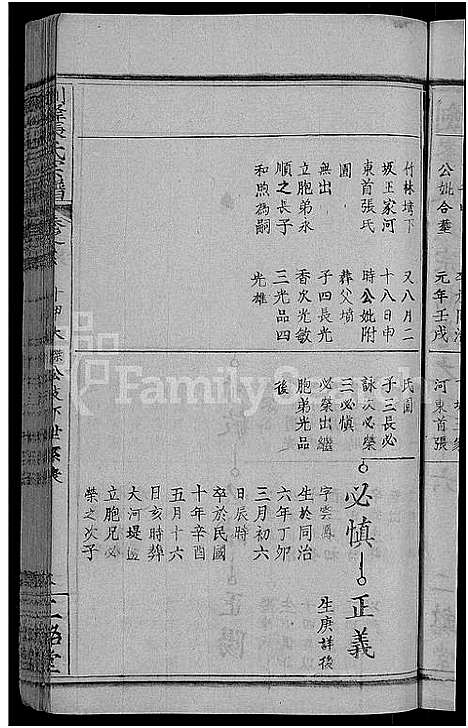 公妣合墓
元年壬戌
河東首張
竹林塆下
坂王家河
東首張氏
園
無出
立胞弟永
順之長子
和煦爲嗣
又八月二
十八日申
時公妣附
葬父墳
子四長光
三光品四
光雄
氏園
子三長必
詠次必榮
三必慎
必榮出繼
胞弟光品
後
必慎
字雲鳳
生於同治
六年丁卯
三月初六
日辰時
卒於民國
十年辛酉
五月十六
日亥時葬
大河堤邊
立胞兄必
榮之次子
正義
生庚詳後
FamilySearch